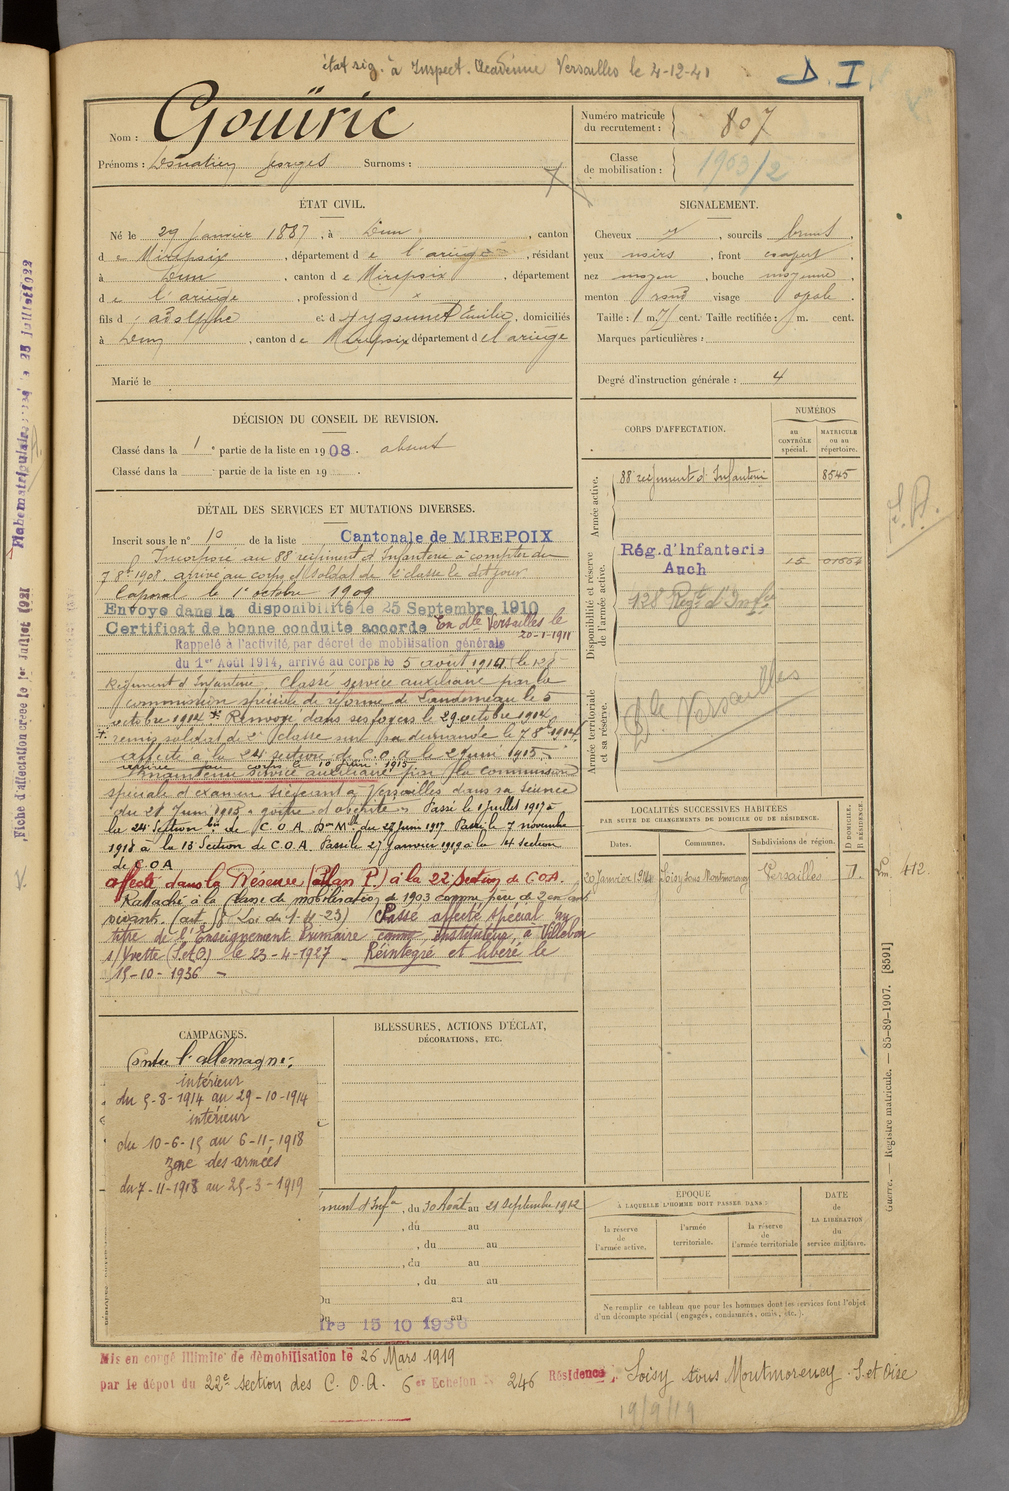 état sig. à Inspect. Académie Versailles le 4-12-41
D. I.
Nom : Gouïric
Prénoms : Donatien Georges Surnoms :
Numéro matricule du recrutement : 807
Classe de mobilisation : 1903/2
ÉTAT CIVIL.
Né le 29 Janvier 1887, à Dun, canton
de Mirepoix, département de l'ariège, résidant
à Dun, canton de Mirepoix, département
de l'ariège, profession d x
fils d'adolphe et d Emilie, domiciliés
à Dun, canton de Mirepoix département de l'ariège
Marié le
SIGNALEMENT.
Cheveux, sourcils bruns,
yeux noirs, front,
nez moyen, bouche moyenne,
menton rond visage ovale.
Taille : 1 m. 71 cent. Taille rectifiée : m. cent.
Marques particulières :
Degré d'instruction générale : 4
DÉCISION DU CONSEIL DE REVISION.
Classé dans la 1e partie de la liste en 1908. absent
Classé dans la partie de la liste en 19 .
DÉTAIL DES SERVICES ET MUTATIONS DIVERSES.
Inscrit sous le n° 10 de la liste Cantonale de MIREPOIX
Incorporé au 88 régiment d'Infanterie à compter du
7 8bre 1908. arrivé au corps et soldat de 2e classe le dit jour
Caporal le 1er octobre 1909
Envoyé dans la disponibilité le 25 Septembre 1910
Certificat de bonne conduite accordé En dle Versailles le
20-1-1911
Rappelé à l'activité, par décret de mobilisation générale
du 1er Août 1914, arrivé au corps le 5 août 1914 le 128
Régiment d'Infanterie. Classé service auxiliaire par la
commission spéciale de réforme de Landerneau le 5
octobre 1914 + Renvoyé dans ses foyers le 29 octobre 1914
+ remis soldat de 2e classe sur sa demande le 7 8bre 1914
affecté à la 24 section de C.O.A le 2 Juin 1915
arrivé au corps le 10 juin 1915
maintenu service auxiliaire par la commission
spéciale d'examen siégeant à Versailles dans sa séance
du 28 Juin 1915 "goitre et obésité". Passé le 1 juillet 1917 à
la 24 section bis de C.O.A Don Mlle du 23 juin 1917 Passé le 7 novembre
1918 à la 15 Section de C.O.A. Passé le 27 Janvier 1919 à la 14 section
de C.O.A
affecté dans la Réserve (Plan P.) à la 22 Section de C.O.A.
Rattaché à la classe de mobilisation de 1903 comme père de 2 enfants
vivants. (art. 58 Loi du 1-4-23) Passé affecté spécial au
titre de l'Enseignement Primaire comme instituteur, à Villebon
s/Yvette (S.et O.) le 23-4-1927. Réintégré et libéré le
15-10-1936 -
CORPS D'AFFECTATION.
NUMÉROS
au CONTRÔLE spécial.
MATRICULE ou au répertoire.
Armée active.
88e régiment d'Infanterie 8545
Disponibilité et réserve de l'armée active.
Rég. d'Infanterie
Auch
128 Regt d'Infie
Armée territoriale et sa réserve.
Dle Versailles
LOCALITÉS SUCCESSIVES HABITÉES
PAR SUITE DE CHANGEMENTS DE DOMICILE OU DE RÉSIDENCE.
Dates. Communes. Subdivisions de région. D DOMICILE. R RÉSIDENCE.
20 Janvier 1911 Soisy sous Montmorency Versailles D.
412
CAMPAGNES.
Contre l'allemagne :
intérieur
du 5-8-1914 au 29-10-1914
intérieur
du 10-6-15 au 6-11-1918
zone des armées
du 7-11-1918 au 25-3-1919
BLESSURES, ACTIONS D'ÉCLAT,
DÉCORATIONS, ETC.
ment d'Infie, du 30 Août au 21 Septembre 1912
, du au
, du au
, du au
, du au
Du au
Du au
15 10 1936
ÉPOQUE
À LAQUELLE L'HOMME DOIT PASSER DANS :
la réserve de l'armée active.
l'armée territoriale.
la réserve de l'armée territoriale
DATE DE LA LIBÉRATION du service militaire.
Ne remplir ce tableau que pour les hommes dont les services font l'objet
d'un décompte spécial (engagés, condamnés, omis, etc.)
Mis en congé illimité de démobilisation le 26 Mars 1919
par le dépôt du 22e section des C.O.A. 6er Echelon N° 246 Résidence, Soisy sous Montmorency. S. et Oise
19/9/19
Guerre. — Registre matricule. — 85-89-1907. [8591]
Fiche d'affectation créée le 1er Juillet 1921